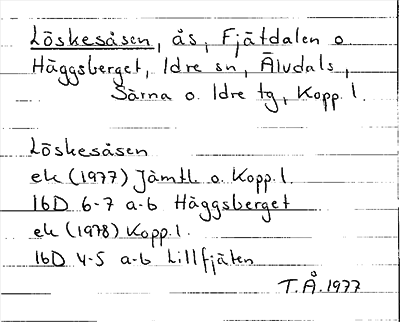 Löskesåsen, ås, Fjätdalen o
Häggsberget, Idre sn, Älvdals,
Särna o. Idre tg, Kopp. l.
Löskesåsen
ek (1977) Jämtl o. Kopp. l.
16D 6-7 a-b Häggsberget
ek (1978) Kopp. l.
16D 4-5 a-b Lillfjäten
T.Å. 1977